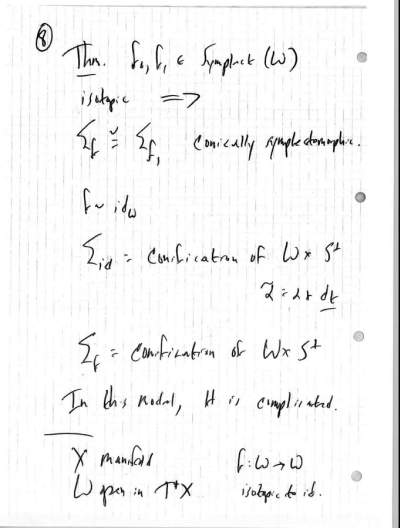 8
Thm. f₀, f₁ ∈ Symplect (W)
isotopic ⟹
Σ_f ≅ Σ_f₁ conically symplectomorphic.
f ~ id_W
Σ_id = Conification of W × S¹
+ dt
Σ_f = Conification of W × S¹
In this model, H is complicated.
X manifold f : W → W
W open in T*X isotopic to id.